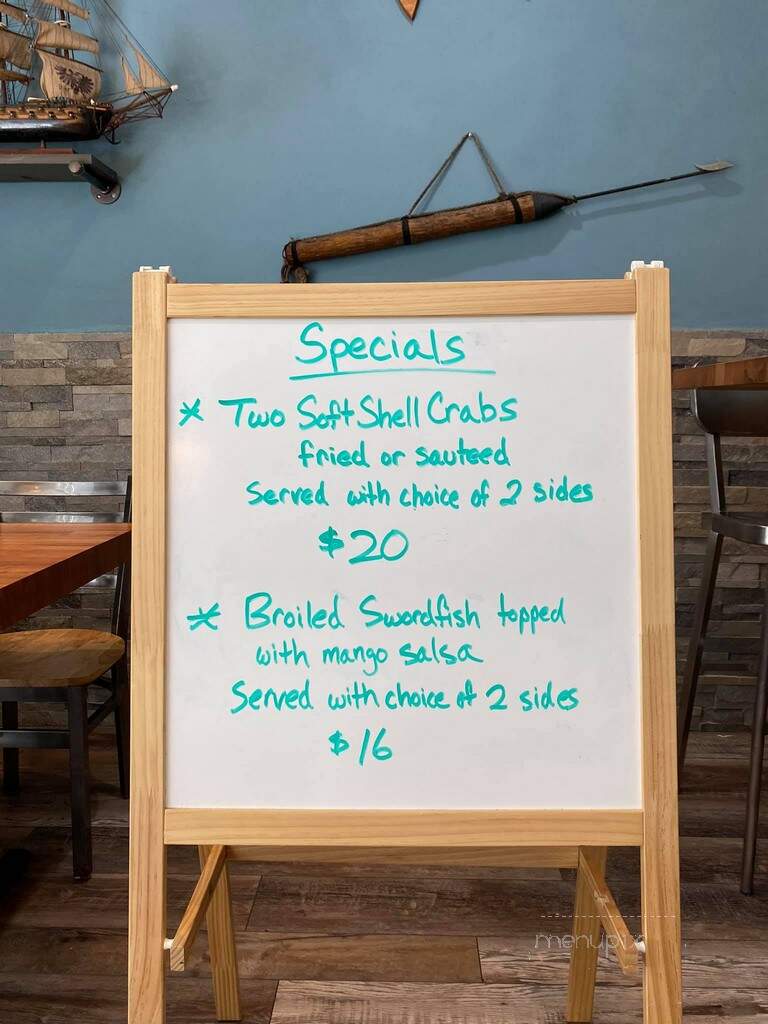 Specials
* Two Soft Shell Crabs
fried or sauteed
Served with choice of 2 sides
$20
* Broiled Swordfish topped
with mango salsa
Served with choice of 2 sides
$16
menupix